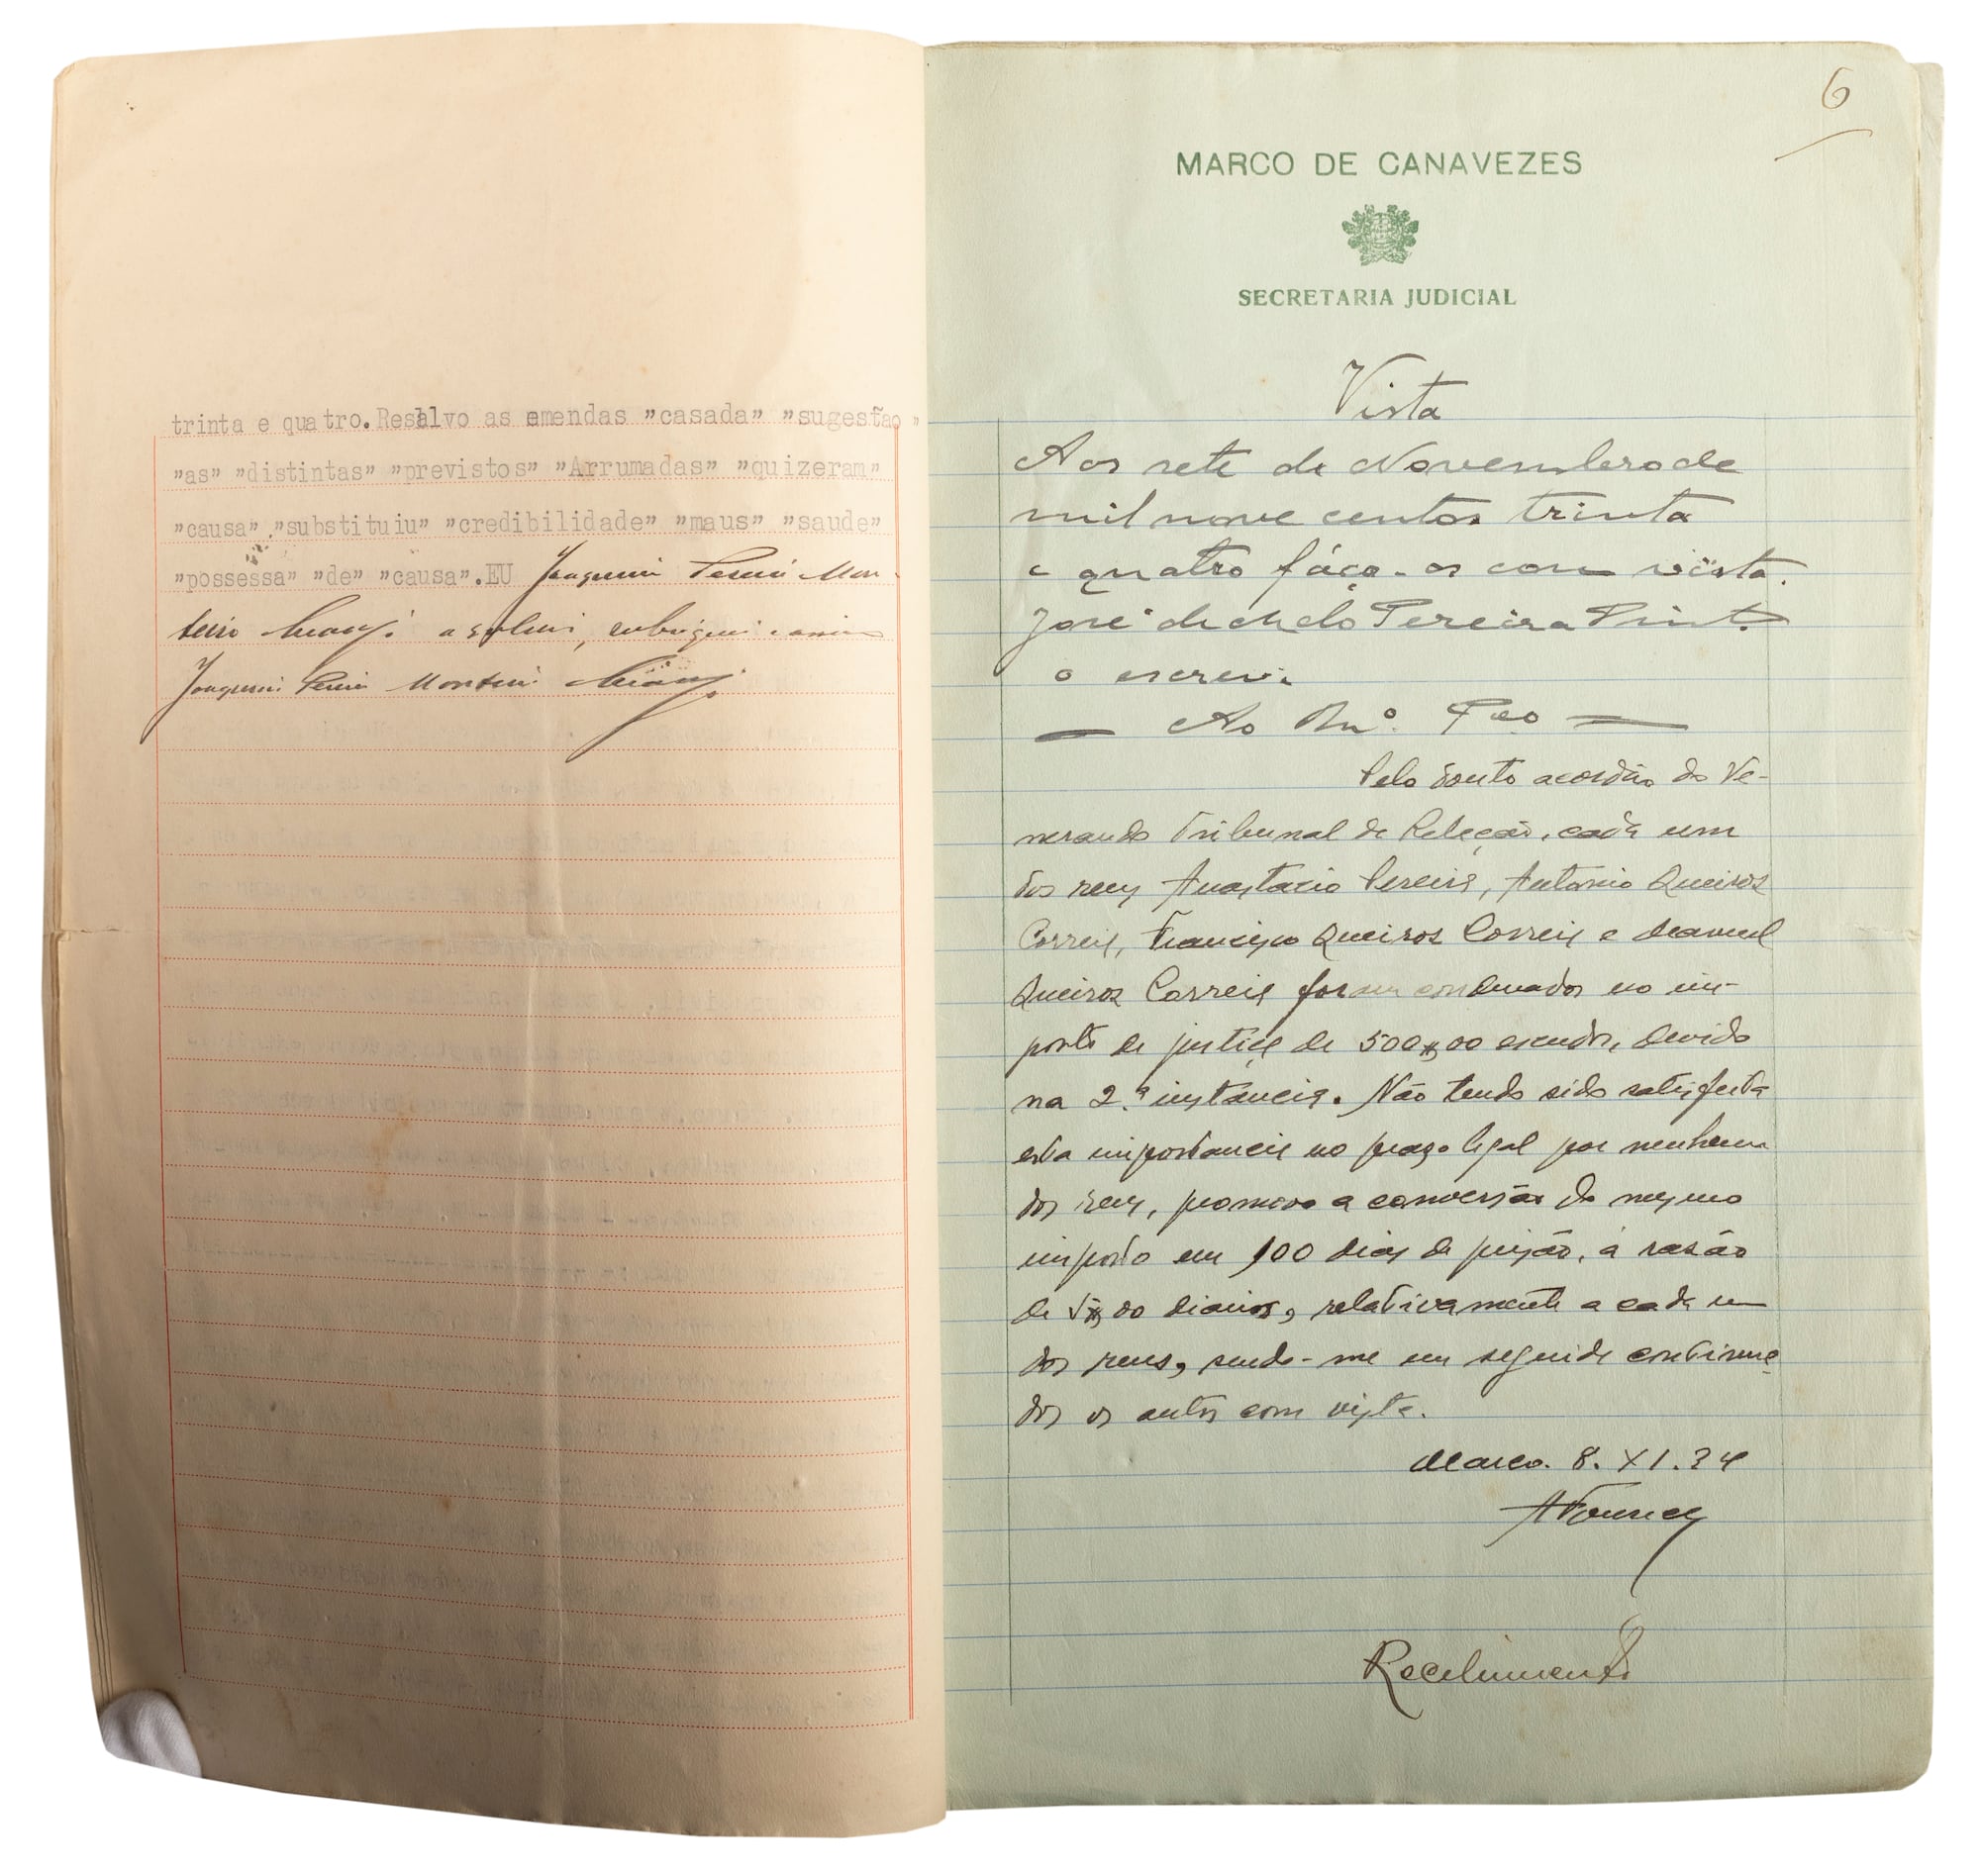 trinta e quatro. Resalvo as emendas "casada" "sugestão"
"as" "distintas" "previstos" "Arrumadas" "quizeram"
"causa"."substituiu" "credibilidade" "maus" "saude"
"possessa" "de" "causa".EU Joaquim Pereira Mon-
teiro a subscrevi, rubriquei e assino
Joaquim Pereira Monteiro
6
MARCO DE CANAVEZES
SECRETARIA JUDICIAL
Vista
Aos sete de Novembro de
mil nove centos trinta
e quatro fáço-os com vista.
José de Melo Pereira Pinto
o escrevi
— Ao —
Pelo douto acordão do Ve-
nerando Tribunal da Relação, cada um
dos reus Anastacio Pereira, Antonio Queiroz
Correia, Francisco Queiroz Correia e Manuel
Queiroz Correia foram condenados no im-
posto de justiça de 500$00 escudos, devido
na 2.ª instancia. Não tendo sido satisfeita
esta importancia no prazo legal por nenhum
dos reus, promovo a conversão do mesmo
imposto em 100 dias de prisão, á rasão
de 5$00 diarios, relativamente a cada um
dos reus, sendo-me em seguida continua-
dos os autos com vista.
Marco. 8. XI. 34
AFonseca
Recebimento